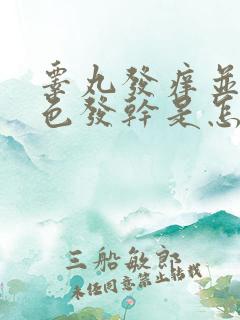 睾丸發痒並
色發幹是怎
三船敏郎
未經同意禁止轉載